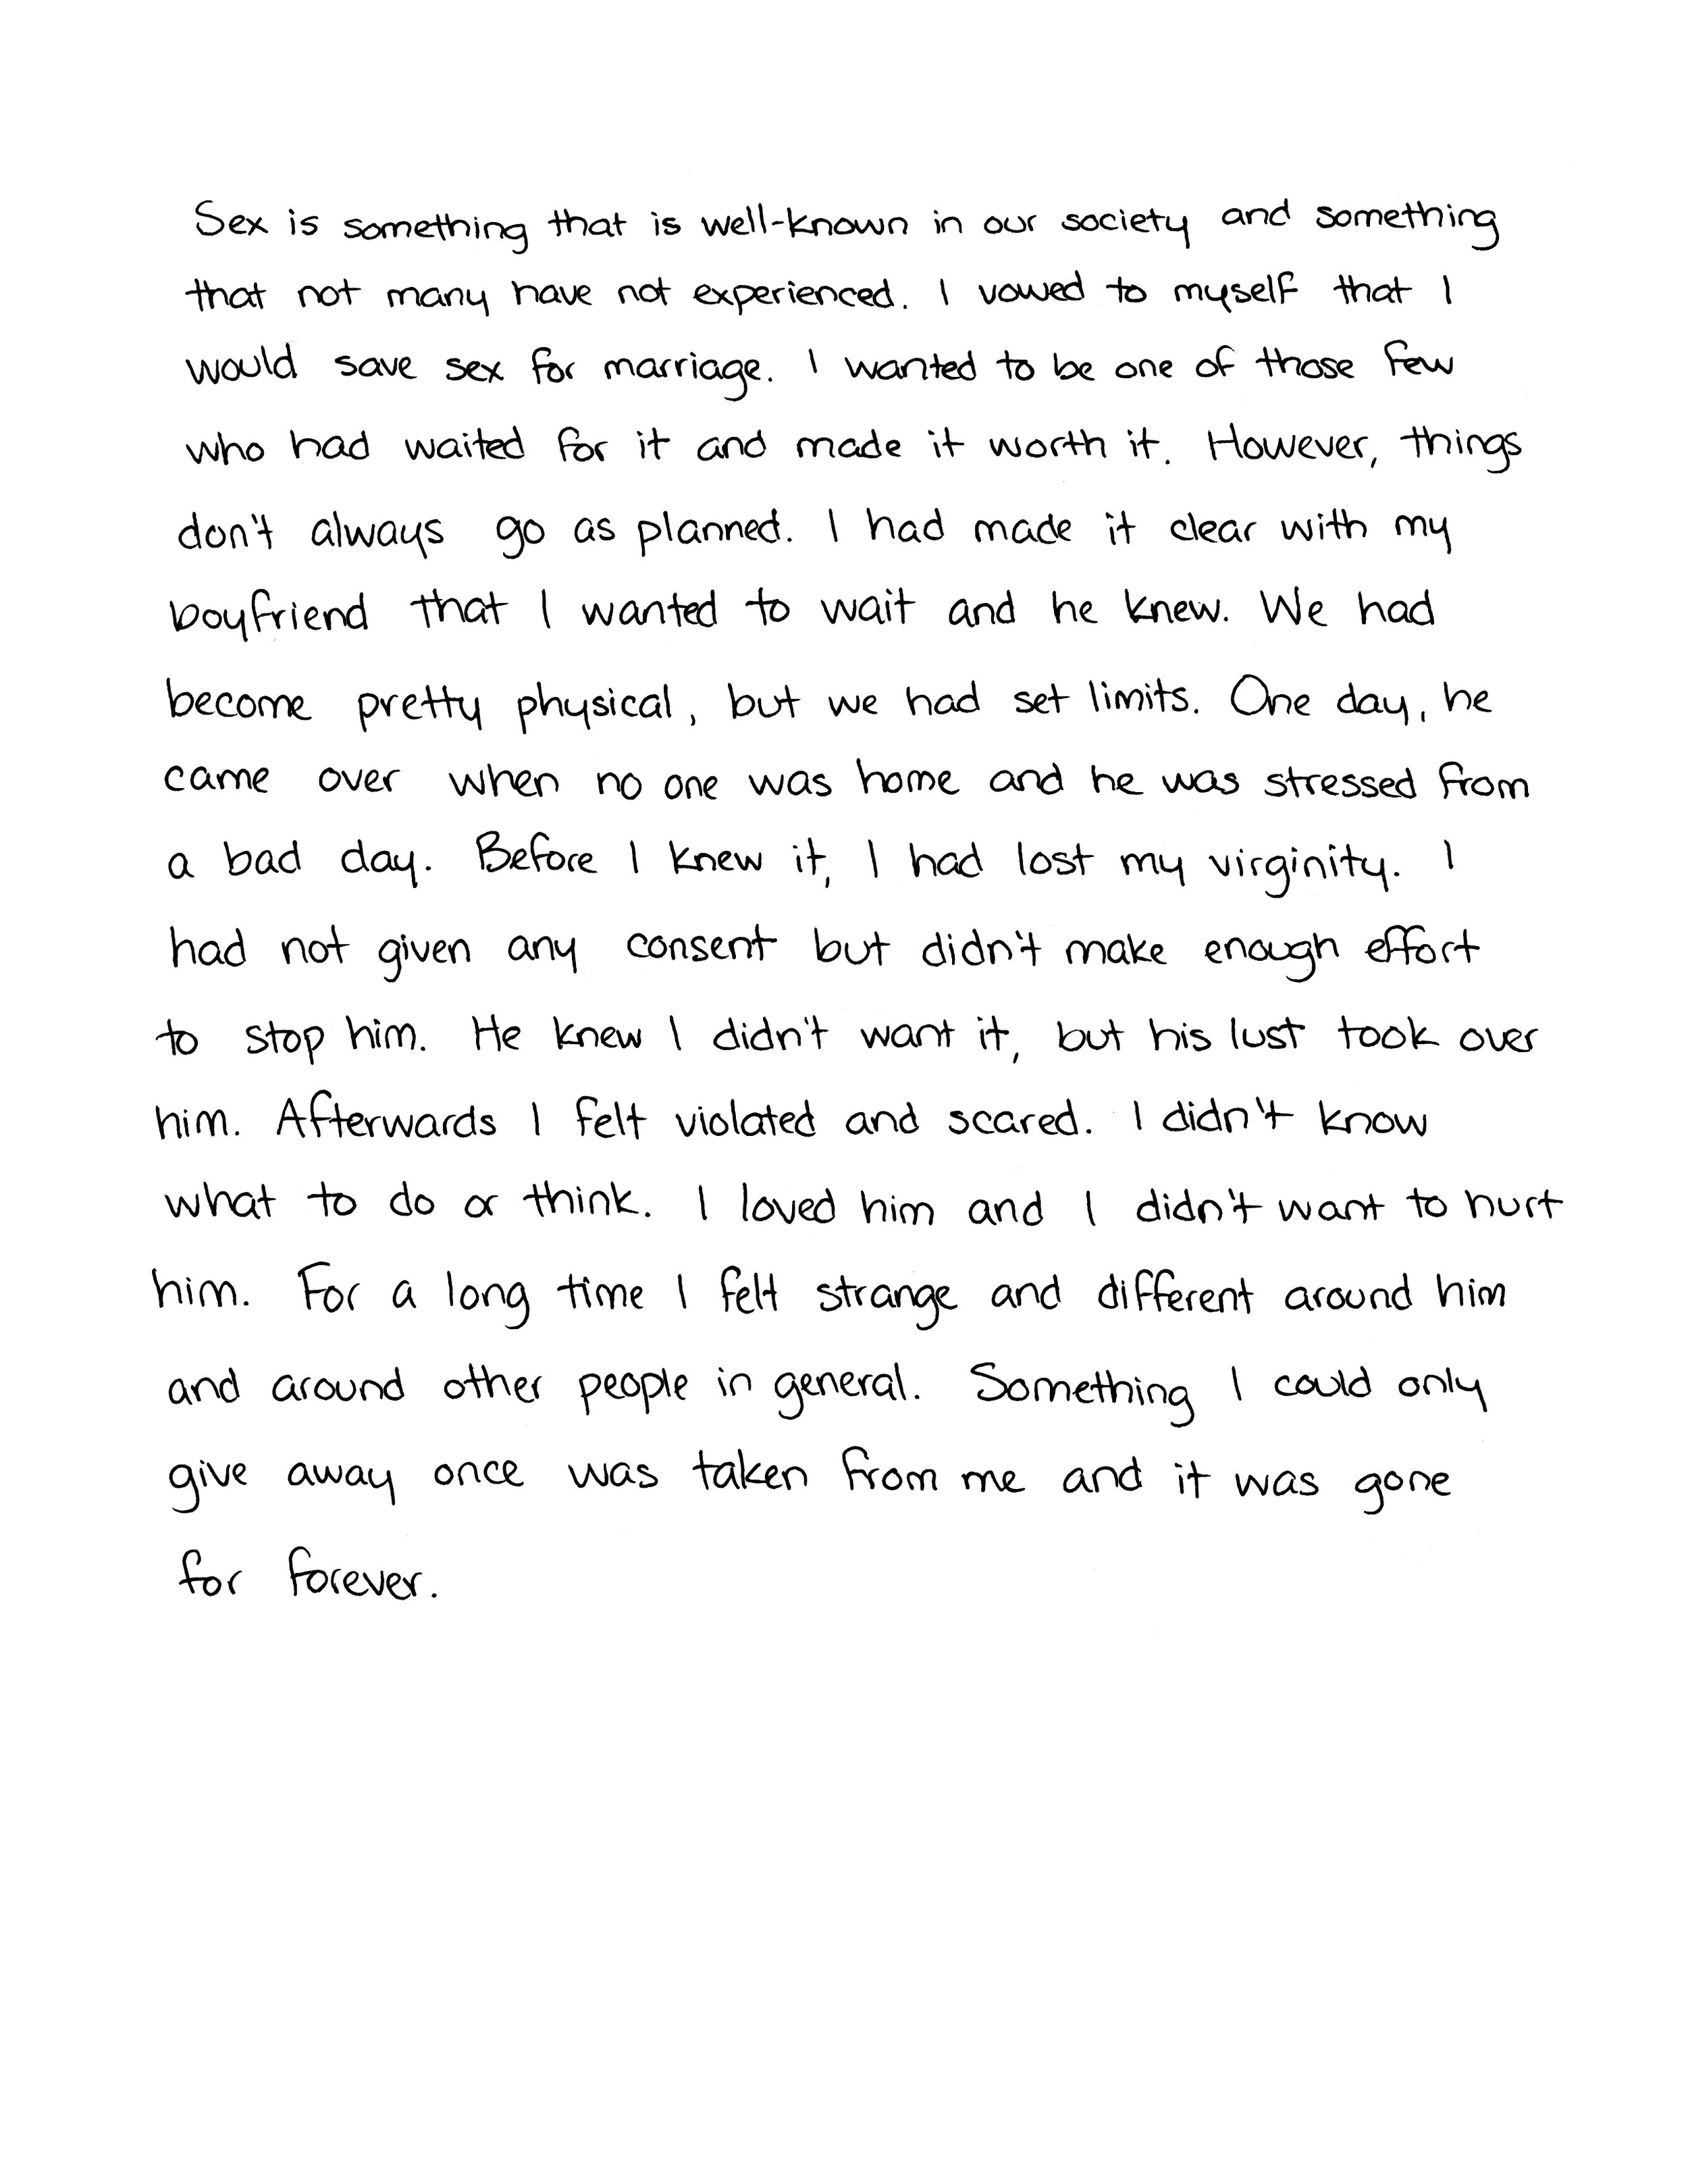 Sex is something that is well-known in our society and something
that not many have not experienced. I vowed to myself that I
would save sex for marriage. I wanted to be one of those few
who had waited for it and made it worth it. However, things
don't always go as planned. I had made it clear with my
boyfriend that I wanted to wait and he knew. We had
become pretty physical, but we had set limits. One day, he
came over when no one was home and he was stressed from
a bad day. Before I knew it, I had lost my virginity. I
had not given any consent but didn't make enough effort
to stop him. He knew I didn't want it, but his lust took over
him. Afterwards I felt violated and scared. I didn't know
what to do or think. I loved him and I didn't want to hurt
him. For a long time I felt strange and different around him
and around other people in general. Something I could only
give away once was taken from me and it was gone
for forever.